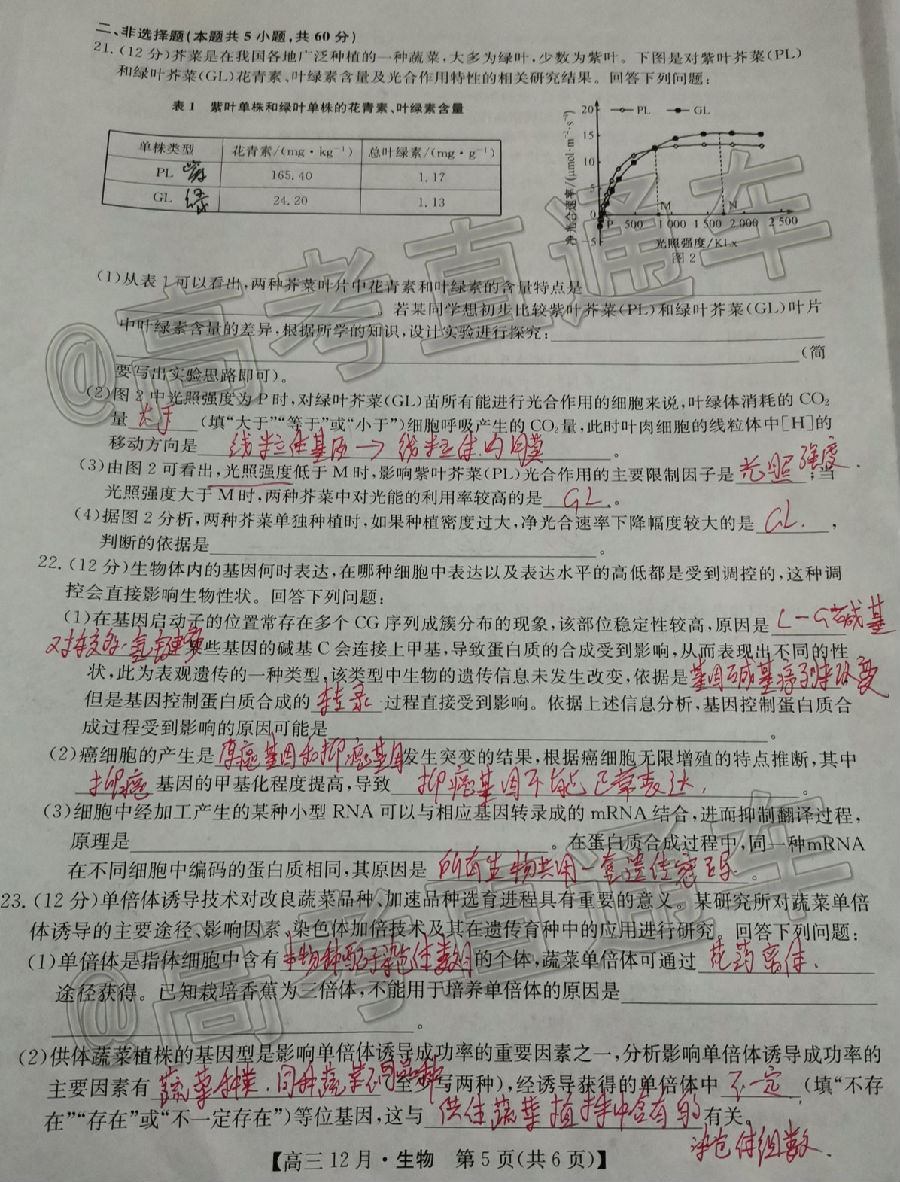 二、非选择题(本题共5小题,共60分)
21.(12分)芥菜是在我国各地广泛种植的一种蔬菜,大多为绿叶,少数为紫叶。下图是对紫叶芥菜(PL)
和绿叶芥菜(GL)花青素、叶绿素含量及光合作用特性的相关研究结果。回答下列问题:
表1 紫叶单株和绿叶单株的花青素、叶绿素含量
单株类型 花青素/(mg·kg⁻¹) 总叶绿素/(mg·g⁻¹)
PL 紫 165.40 1.17
GL 绿 24.20 1.13
PL GL
净光合速率/(μmol·m⁻²·s⁻¹)
20
15
10
5
0
-5
P M N
500 1 000 1 500 2 000 2 500
光照强度/Klx
图2
(1)从表1可以看出,两种芥菜叶片中花青素和叶绿素的含量特点是
。若某同学想初步比较紫叶芥菜(PL)和绿叶芥菜(GL)叶片
中叶绿素含量的差异,根据所学的知识,设计实验进行探究:
(简
要写出实验思路即可)。
(2)图2中光照强度为P时,对绿叶芥菜(GL)苗所有能进行光合作用的细胞来说,叶绿体消耗的CO₂
量 大于 (填“大于”“等于”或“小于”)细胞呼吸产生的CO₂量,此时叶肉细胞的线粒体中[H]的
移动方向是 线粒体基质→线粒体内膜 。
(3)由图2可看出,光照强度低于M时,影响紫叶芥菜(PL)光合作用的主要限制因子是 光照强度 ;当
光照强度大于M时,两种芥菜中对光能的利用率较高的是 GL 。
(4)据图2分析,两种芥菜单独种植时,如果种植密度过大,净光合速率下降幅度较大的是 GL ,
判断的依据是 。
22.(12分)生物体内的基因何时表达,在哪种细胞中表达以及表达水平的高低都是受到调控的,这种调
控会直接影响生物性状。回答下列问题:
(1)在基因启动子的位置常存在多个CG序列成簇分布的现象,该部位稳定性较高,原因是 C-G碱基
对较多,氢键多 某些基因的碱基C会连接上甲基,导致蛋白质的合成受到影响,从而表现出不同的性
状,此为表观遗传的一种类型,该类型中生物的遗传信息未发生改变,依据是 基因碱基序列未改变
但是基因控制蛋白质合成的 转录 过程直接受到影响。依据上述信息分析,基因控制蛋白质合
成过程受到影响的原因可能是 。
(2)癌细胞的产生是 原癌基因和抑癌基因 发生突变的结果,根据癌细胞无限增殖的特点推断,其中
抑癌 基因的甲基化程度提高,导致 抑癌基因不能正常表达 。
(3)细胞中经加工产生的某种小型RNA可以与相应基因转录成的mRNA结合,进而抑制翻译过程,
原理是 。在蛋白质合成过程中,同一种mRNA
在不同细胞中编码的蛋白质相同,其原因是 所有生物共用一套遗传密码 。
23.(12分)单倍体诱导技术对改良蔬菜品种、加速品种选育进程具有重要的意义。某研究所对蔬菜单倍
体诱导的主要途径、影响因素、染色体加倍技术及其在遗传育种中的应用进行研究。回答下列问题:
(1)单倍体是指体细胞中含有 本物种配子染色体数目 的个体,蔬菜单倍体可通过 花药离体
途径获得。已知栽培香蕉为三倍体,不能用于培养单倍体的原因是
。
(2)供体蔬菜植株的基因型是影响单倍体诱导成功率的重要因素之一,分析影响单倍体诱导成功率的
主要因素有 蔬菜种类、同种蔬菜不同品种 (至少写两种),经诱导获得的单倍体中 不一定 (填“不存
在”“存在”或“不一定存在”)等位基因,这与 供体蔬菜植株中含有的 有关。
染色体组数
【高三12月·生物 第5页(共6页)】
@高考直通车
@高考直通车